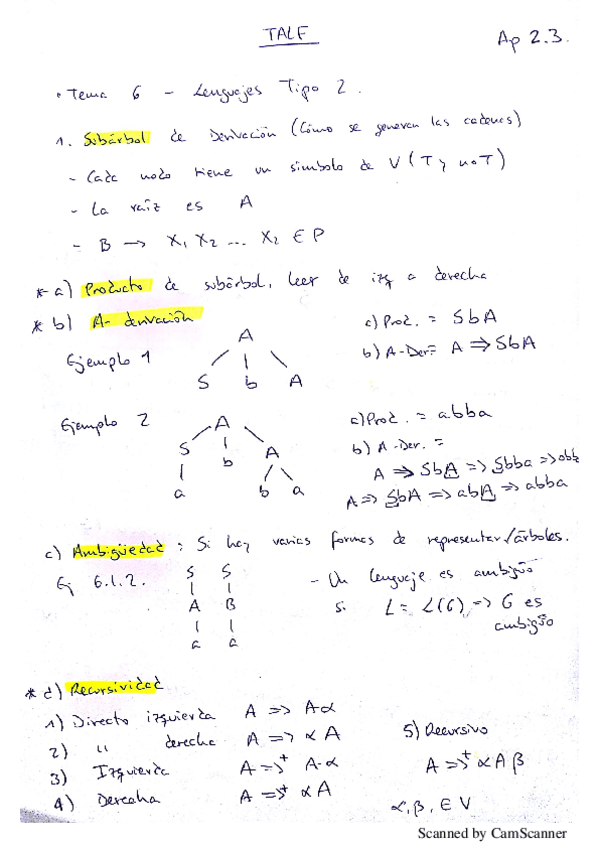 TALF
Ap 2.3.
· Tema 6 - Lenguajes Tipo 2.
1. Subárbol de Derivación (Cómo se generan las cadenas)
- Cada nodo tiene un simbolo de V (T y noT)
- La raíz es A
- B → X₁ X₂ ... X₂ ∈ P
* a) Producto de subárbol, leer de izq a derecha
* b) A- derivación
Ejemplo 1
A
S b A
a) Prod. = SbA
b) A-Der = A ⇒ SbA
Ejemplo 2
A
S b A
a b a
a) Prod. = abba
b) A-Der. =
A ⇒ SbA ⇒ Sbba ⇒ abba
A ⇒ SbA ⇒ abA ⇒ abba
c) Ambigüedad: Si hay varias formas de representar/árboles.
Ej 6.1.2.
S S
A B
a a
- Un lenguaje es ambigüo
si L = L(G) ⇒ G es
ambigüo
* d) Recursividad
1) Directo izquierda A ⇒ Aα
2) " derecha A ⇒ αA
3) Izquierda A ⇒⁺ A·α
4) Derecha A ⇒⁺ αA
5) Recursivo
A ⇒⁺ αAβ
α, β, ∈ V
Scanned by CamScanner